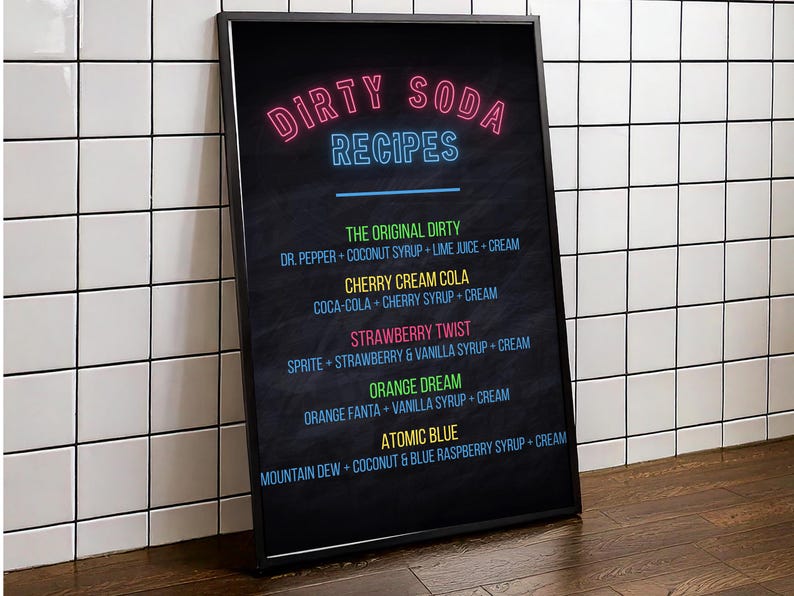 DIRTY SODA
RECIPES
THE ORIGINAL DIRTY
DR. PEPPER + COCONUT SYRUP + LIME JUICE + CREAM
CHERRY CREAM COLA
COCA-COLA + CHERRY SYRUP + CREAM
STRAWBERRY TWIST
SPRITE + STRAWBERRY & VANILLA SYRUP + CREAM
ORANGE DREAM
ORANGE FANTA + VANILLA SYRUP + CREAM
ATOMIC BLUE
MOUNTAIN DEW + COCONUT & BLUE RASPBERRY SYRUP + CREAM